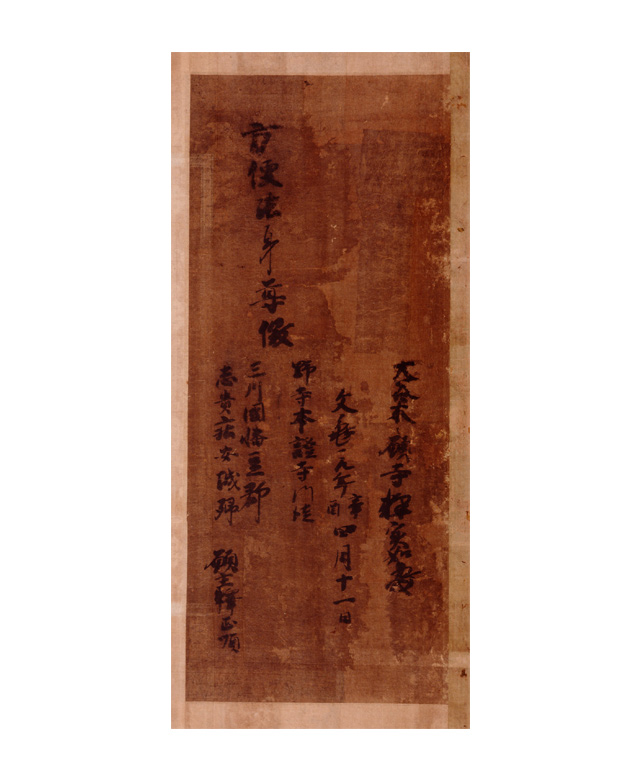 大谷本願寺釋実如
文亀元年辛酉四月十一日
野寺本證寺門徒
方便法身尊像
三川國幡豆郡
志貴庄安城郷
願主釋正順